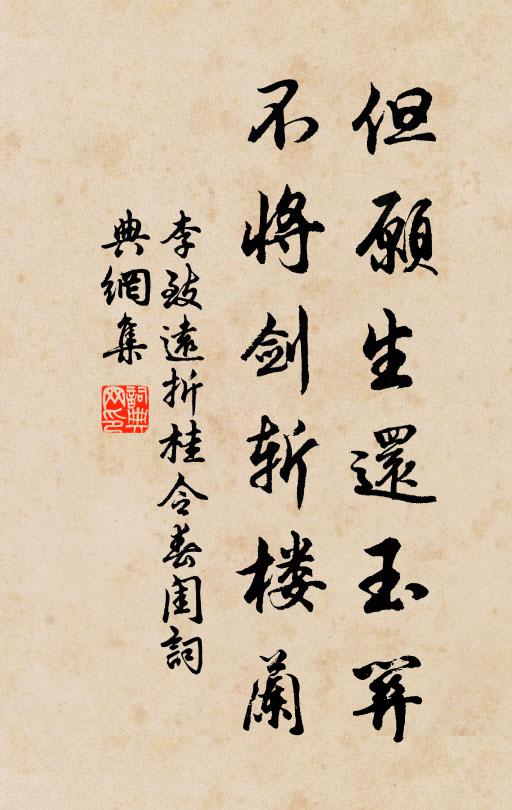 但願生還玉關
不將劍斬楼蘭
李致遠折桂令春闺詞
典網集
詞典
网印